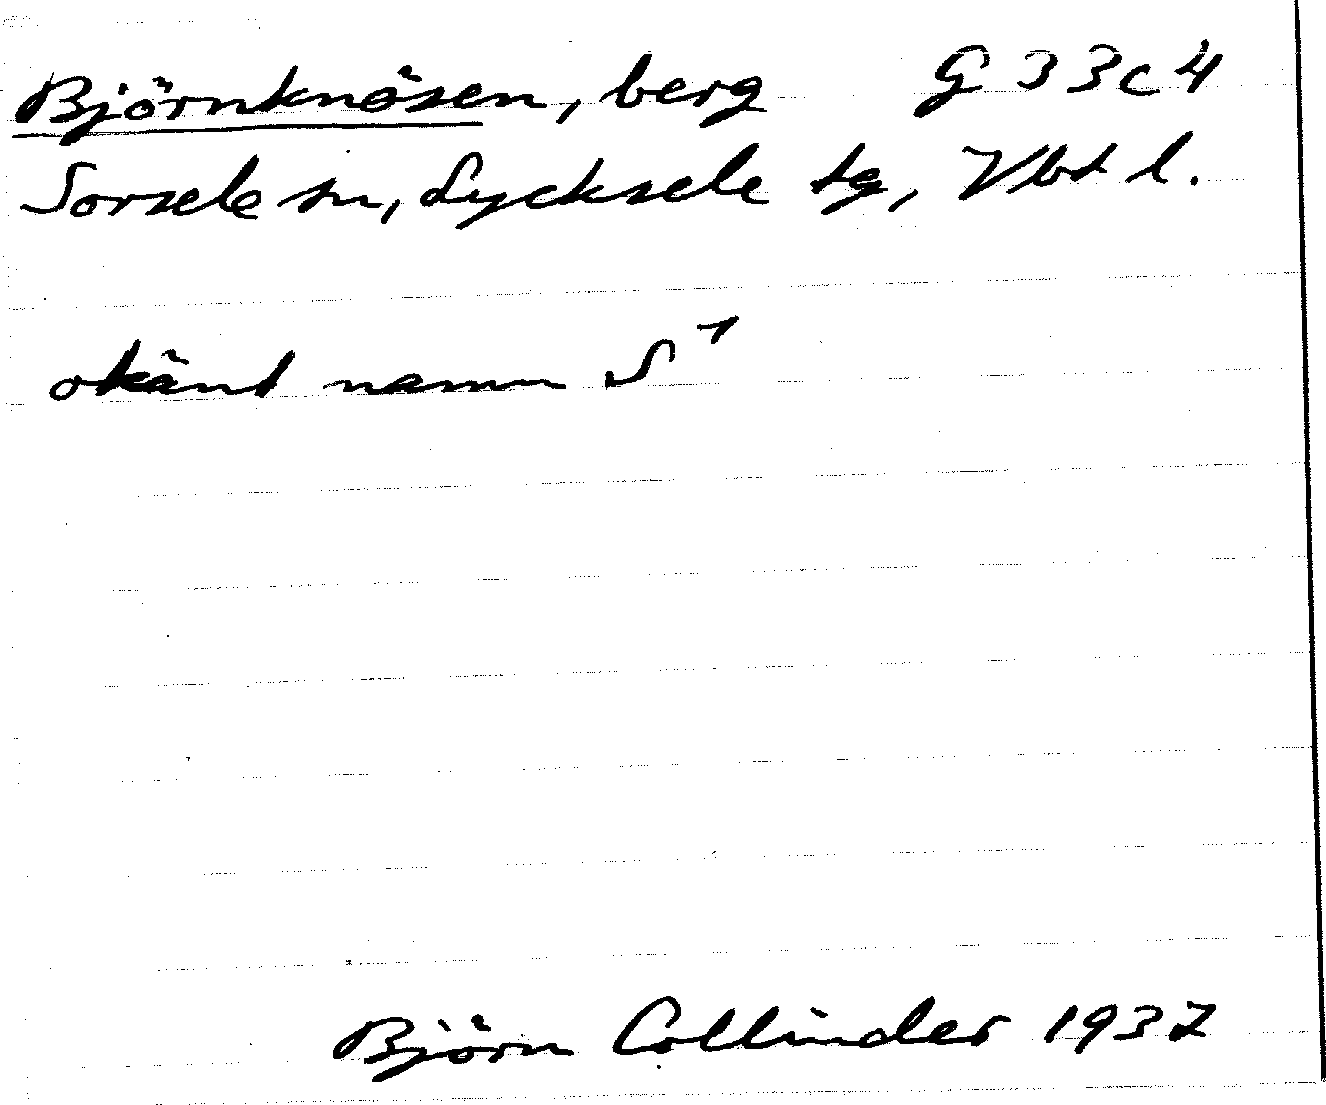 Björnknösen, berg G 33c4
Sorsele sn, Lycksele tg, Vbt l.
okänt namn S 1
Björn Collinder 1937